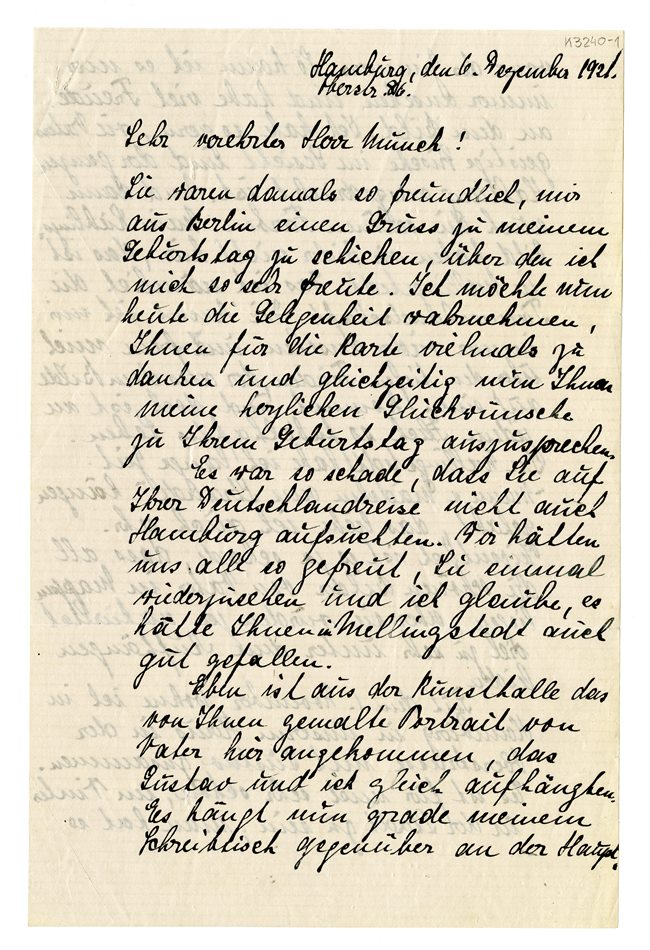 K3240-1
Hamburg, den 6. Dezember 1921.
Oberstr. 86.
Sehr verehrter Herr Munch!
Sie waren damals so freundlich, mir
aus Berlin einen Gruss zu meinem
Geburtstag zu schicken, über den ich
mich so sehr freute. Ich möchte nun
heute die Gelegenheit wahrnehmen,
Ihnen für die Karte vielmals zu
danken und gleichzeitig nun Ihnen
meine herzlichen Glückwünsche
zu Ihrem Geburtstag auszusprechen.
Es war so schade, dass Sie auf
Ihrer Deutschlandreise nicht auch
Hamburg aufsuchten. Wir hätten
uns alle so gefreut, Sie einmal
wiederzusehen und ich glaube, es
hätte Ihnen in Mellingstedt auch
gut gefallen.
Eben ist aus der Kunsthalle das
von Ihnen gemalte Portrait von
Vater hier angekommen, das
Gustav und ich gleich aufhängten.
Es hängt nun grade meinem
Schreibtisch gegenüber an der Haupt-